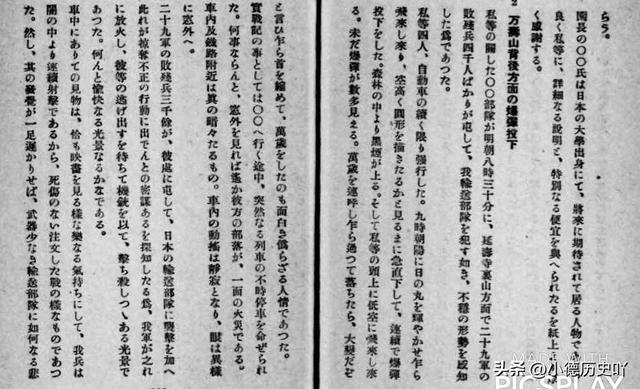 らう。
園長の〇〇氏は日本の大學出身にて、將來に期待されて居る人物で
良く私等に、詳細なる說明と、特別なる便宜を與へられたるを紙上
く感謝する。
2 万壽山背後方面の爆彈投下
私等の關した〇〇部隊が明朝八時三十分に、延壽寺裏山方面で二十九軍の
敗殘兵四千人ばかりが屯して、我輸送部隊を犯す如き、不穩の形勢を感知
した爲であつた。
私等四人、自動車の續く限り强行した。九時朝陽に日の丸を輝やかせ乍ら
飛來し來り、空高く圓形を描きたるかと見るまに急直下して、連續で爆彈
投下をした。森林の中より黑煙が上る。そして私等の頭上に低空に飛來し來
る。未だ爆彈が數多見える。萬歲を連呼し乍ら過つて落ちたら、大變だぞ
と言ひ乍ら首を縮めて、萬歲をしたのも面白き僞らざる人情であつた。
實戰記の事としては〇〇へ行く途中、突然なる列車の不時停車を命ぜられ
た。何事ならんと、窓外を見れば遙か彼方の部落が、一面の火災である。
車內及鐵路附近は眞の暗々たるもの。車內の動搖は靜寂となり、眼は異樣
に窓外へ。
二十九軍の敗殘兵三千餘が、彼處に屯して、日本の輸送部隊に襲擊を加へ
此れが掠奪不正の行動に出でんとの密謀あるを探知したる爲、我軍が之れ
に放火し、彼等の逃げ出すを待ちて機銃を以て、擊ち殺しつゝある光景で
あつた。何んと愉快なる光景なるかなである。
車中にありての見物は、恰も映畫を見る樣な樂なる氣持ちにして、我兵は
闇の中より連續射擊であるから、死傷のない注文した戰の樣なものであつ
た。然し、其の發覺が一足遲かりせば、武器少なき輸送部隊に如何なる悲
MADE WITH
PICSPLAY
头条 @小德历史吖